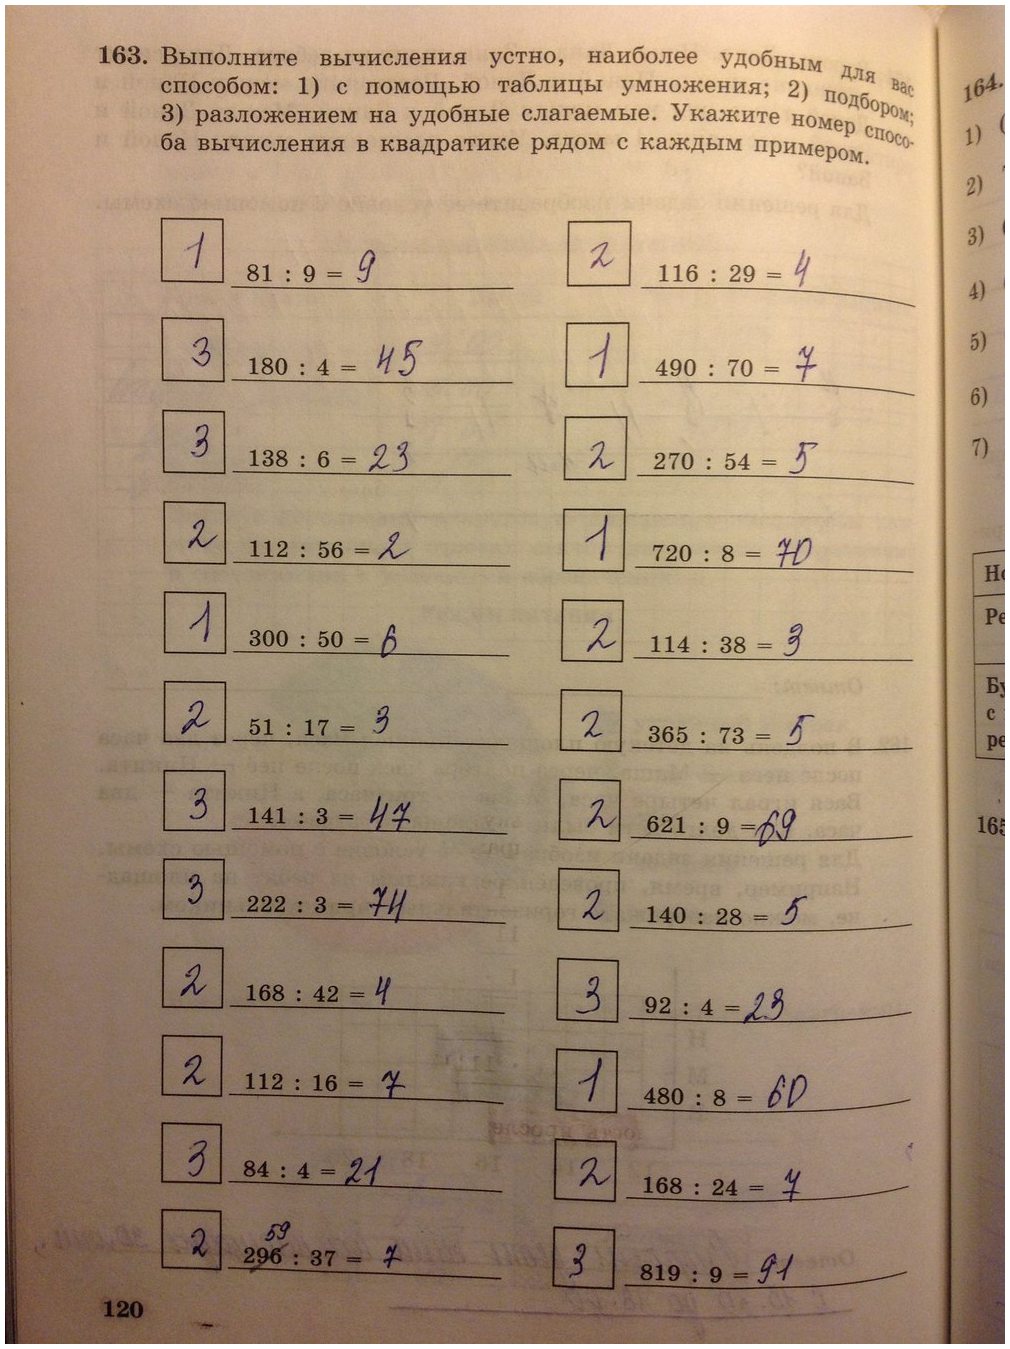 163. Выполните вычисления устно, наиболее удобным для вас
способом: 1) с помощью таблицы умножения; 2) подбором;
3) разложением на удобные слагаемые. Укажите номер спосо-
ба вычисления в квадратике рядом с каждым примером.
1 81 : 9 = 9
2 116 : 29 = 4
3 180 : 4 = 45
1 490 : 70 = 7
3 138 : 6 = 23
2 270 : 54 = 5
2 112 : 56 = 2
1 720 : 8 = 70
1 300 : 50 = 6
2 114 : 38 = 3
2 51 : 17 = 3
2 365 : 73 = 5
3 141 : 3 = 47
2 621 : 9 = 69
3 222 : 3 = 74
2 140 : 28 = 5
2 168 : 42 = 4
3 92 : 4 = 23
2 112 : 16 = 7
1 480 : 8 = 60
3 84 : 4 = 21
2 168 : 24 = 7
59
2 296 : 37 = 7
3 819 : 9 = 91
120
164.
1)
2)
3)
4)
5)
6)
7)
Но
Ре
Бу
с
ре
165